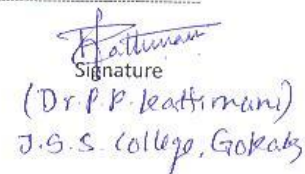 Signature
(Dr. P. P. Kattimani)
J.S.S. College, Gokak